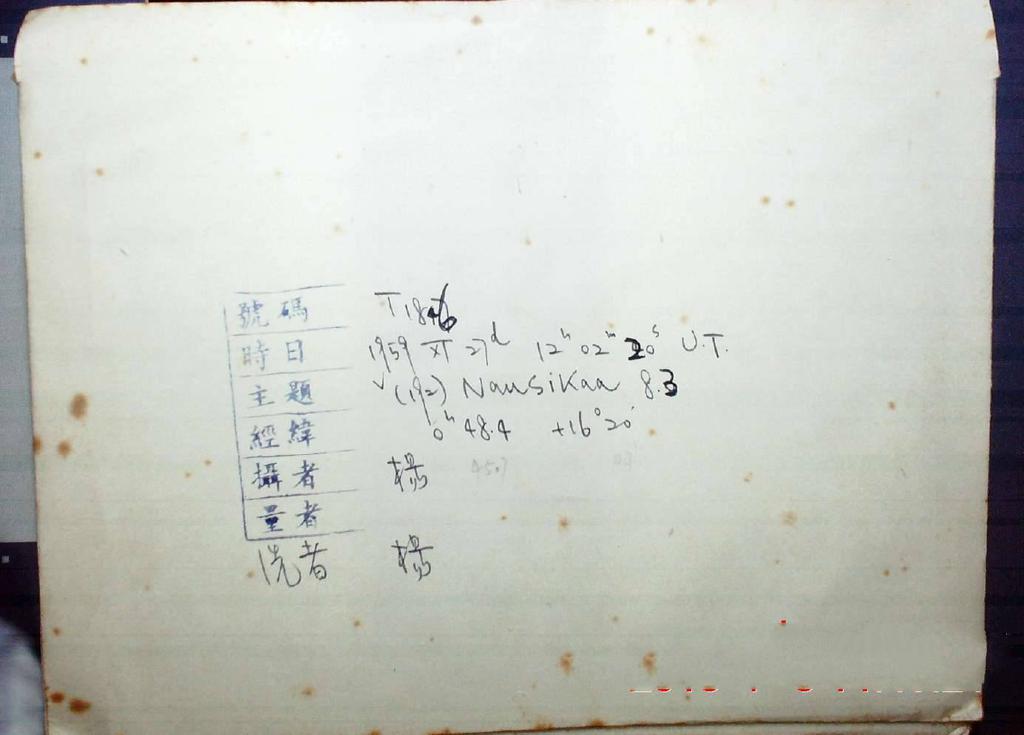 號碼 T1846
時日 1959 XI 27d 12h 02m 20s U.T.
主題 √ (192) Nausikaa 8.3
經緯 0h 48.4 +16°20'
攝者 楊
量者
洗者 楊